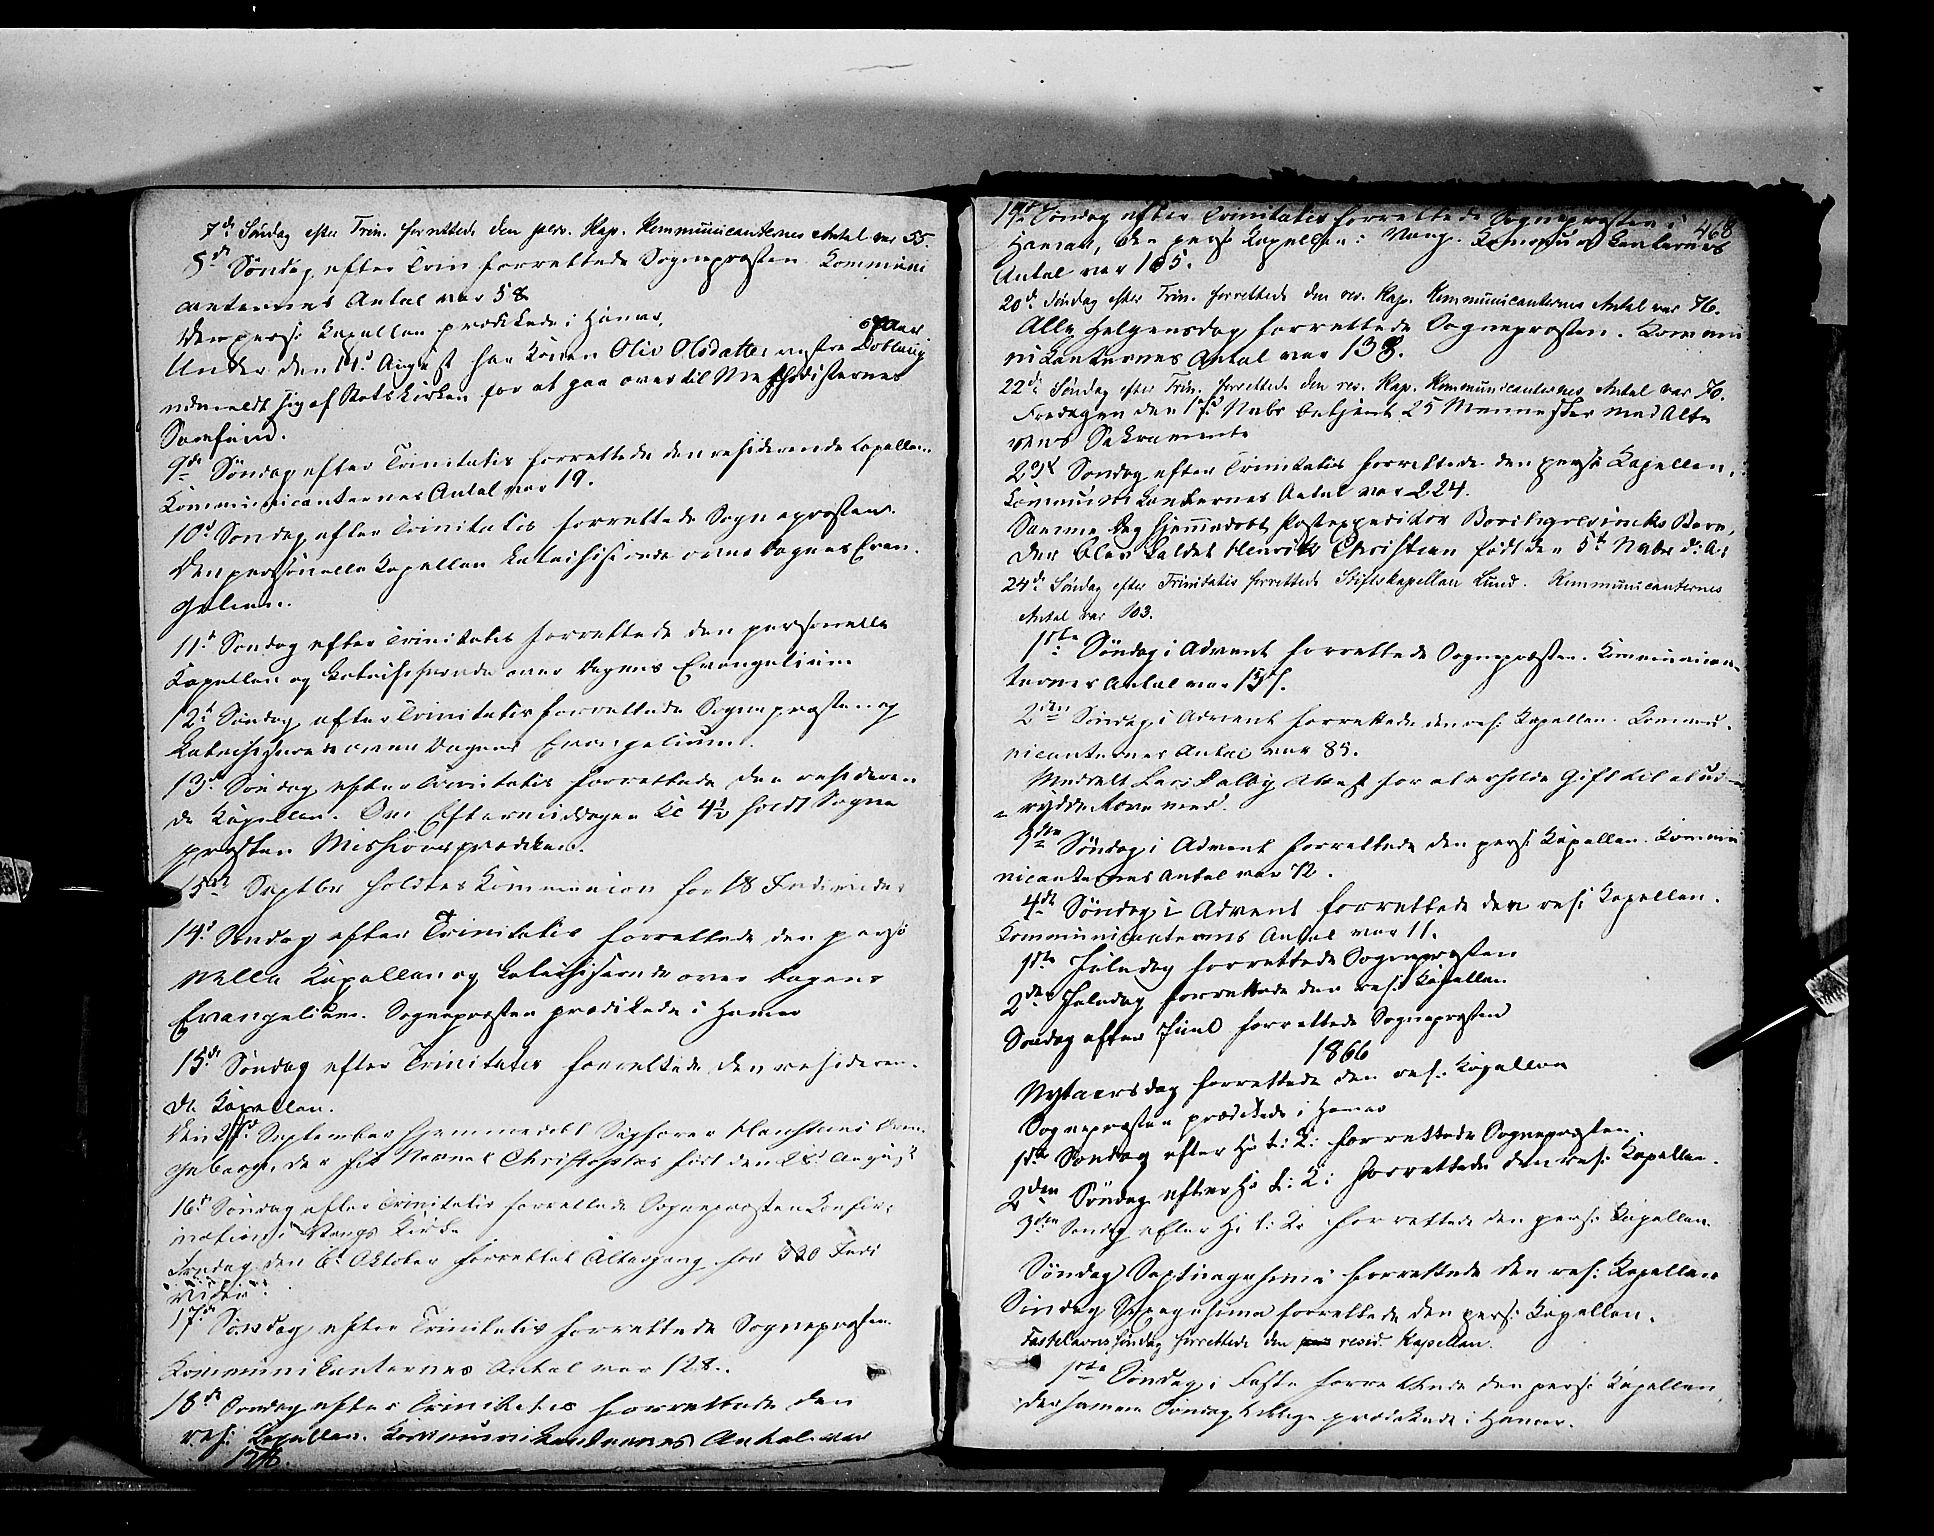 7de Søndag efter Trin. forrettede den pers. Kap. Kommunicanternes Antal var 55.
8de Søndag efter Trin forrettede Sognepræsten. Kommuni
canternes Antal var 58
Den pers: Kapellan prædikede i Hamar.
Under den 14d August har Konen Oliv Olsdatter vestre Doblaug
udmeldt sig af Statskirken for at gaa over til Methodisternes
Samfund.
9de Søndag efter Trinitatis forrettede den residerende Capellan.
Kommunicanternes Antal var 19.
10d Søndag efter Trinitatis forrettede Sognepræsten.
Den personelle Kapellan katechiserede over Dagens Evan-
gelium.
11d Søndag efter Trinitatis forrettede den personelle
Kapellan og katechiserede over Dagens Evangelium
12d Søndag efter Trinitatis forrettede Sognepræsten og
katechiserede over Dagens Evangelium.
13d Søndag efter Trinitatis forrettede den resideren-
de Kapellan. Om Eftermiddagen Kl 4½ holdt Sogne
præsten Missionsprædiken.
15de Septbr holdtes Kommunion for 18 Individer
14d Søndag efter Trinitatis forrettede den perso
nelle Kapellan og katechiserede over Dagens
Evangelium. Sognepræsten prædikede i Hamar
15de Søndag efter Trinitatis forrettede den resideren-
de Kapellan.
Den September hjemmedøbt
der fik Navnet Christopher født den 28d August
16d Søndag efter Trinitatis forrettede Sognepræsten Confir-
mation i Vangs Kirke
Fredag den 6d Oktober forrettet Altergang for 320 Indi
vider.
17de Søndag efter Trinitatis forrettede Sognepræsten.
Kommunikanternes Antal var 128.
18de Søndag efter Trinitatis forrettede den
res: Kapellan. Kommunikanternes Antal var
468
19de Søndag efter Trinitatis forrettede Sognepræsten i
Hamar, den pers: Kapellan i Vang. Kommunikanternes
Antal var 105.
20d Søndag efter Trin. forrettede den res. Kap. Kommunicanternes Antal var 76.
Alle Helgensdag forrettede Sognepræsten. Kommu
nikanternes Antal var 138.
22de Søndag efter Trin. forrettede den res. Kap. Kommunicanternes Antal var 70.
Fredagen den 17d Novbr betjent 25 Mennesker med Alte
rens Sakramente
23d Søndag efter Trinitatis forrettede den pers: Kapellan.
Kommunikanternes Antal var 224.
Samme Dag hjemmedøbt Postexpeditør Borchgrevincks Barn,
der blev kaldet Henrik Christian født den 5te Novbr d: A:
24de Søndag efter Trinitatis forrettede Stiftskapellan Lund. Kommunicanternes
Antal var 103.
1ste Søndag i Advent forrettede Sognepræsten. Kommunican-
ternes Antal var
2den Søndag i Advent forrettede den res: Kapellan. Commu-
nicanternes Antal var 85.
Meddelt Lars Dalby Attest for at erholde Gift til at ud-
rydde Rovdyr med.
3die Søndag i Advent forrettede den pers: Kapellan. Kommu
nicanternes Antal var 72.
4de Søndag i Advent forrettede den res: Kapellan.
Kommunicanternes Antal var 11.
1ste Juledag forrettede Sognepræsten
2den Juledag forrettede den res: Kapellan.
Søndag efter Juul forrettede Sognepræsten
1866
Nytaarsdag forrettede den res: Kapellan
Sognepræsten prædikede i Hamar
1ste Søndag efter H: t: K: forrettede Sognepræsten.
2den Søndag efter H: t: K: forrettede den res: Kapellan.
3die Søndag efter H: t: K: forrettede den pers: Kapellan.
Søndag Septuagesima forrettede den res: Kapellan
Søndag Sexagesima forrettede den pers: Kapellan.
Fastelavnssøndag forrettede den resid. Kapellan.
1ste Søndag i Faste forrettede den pers: Kapellan,
der samme Søndag prædikede i Hamar.